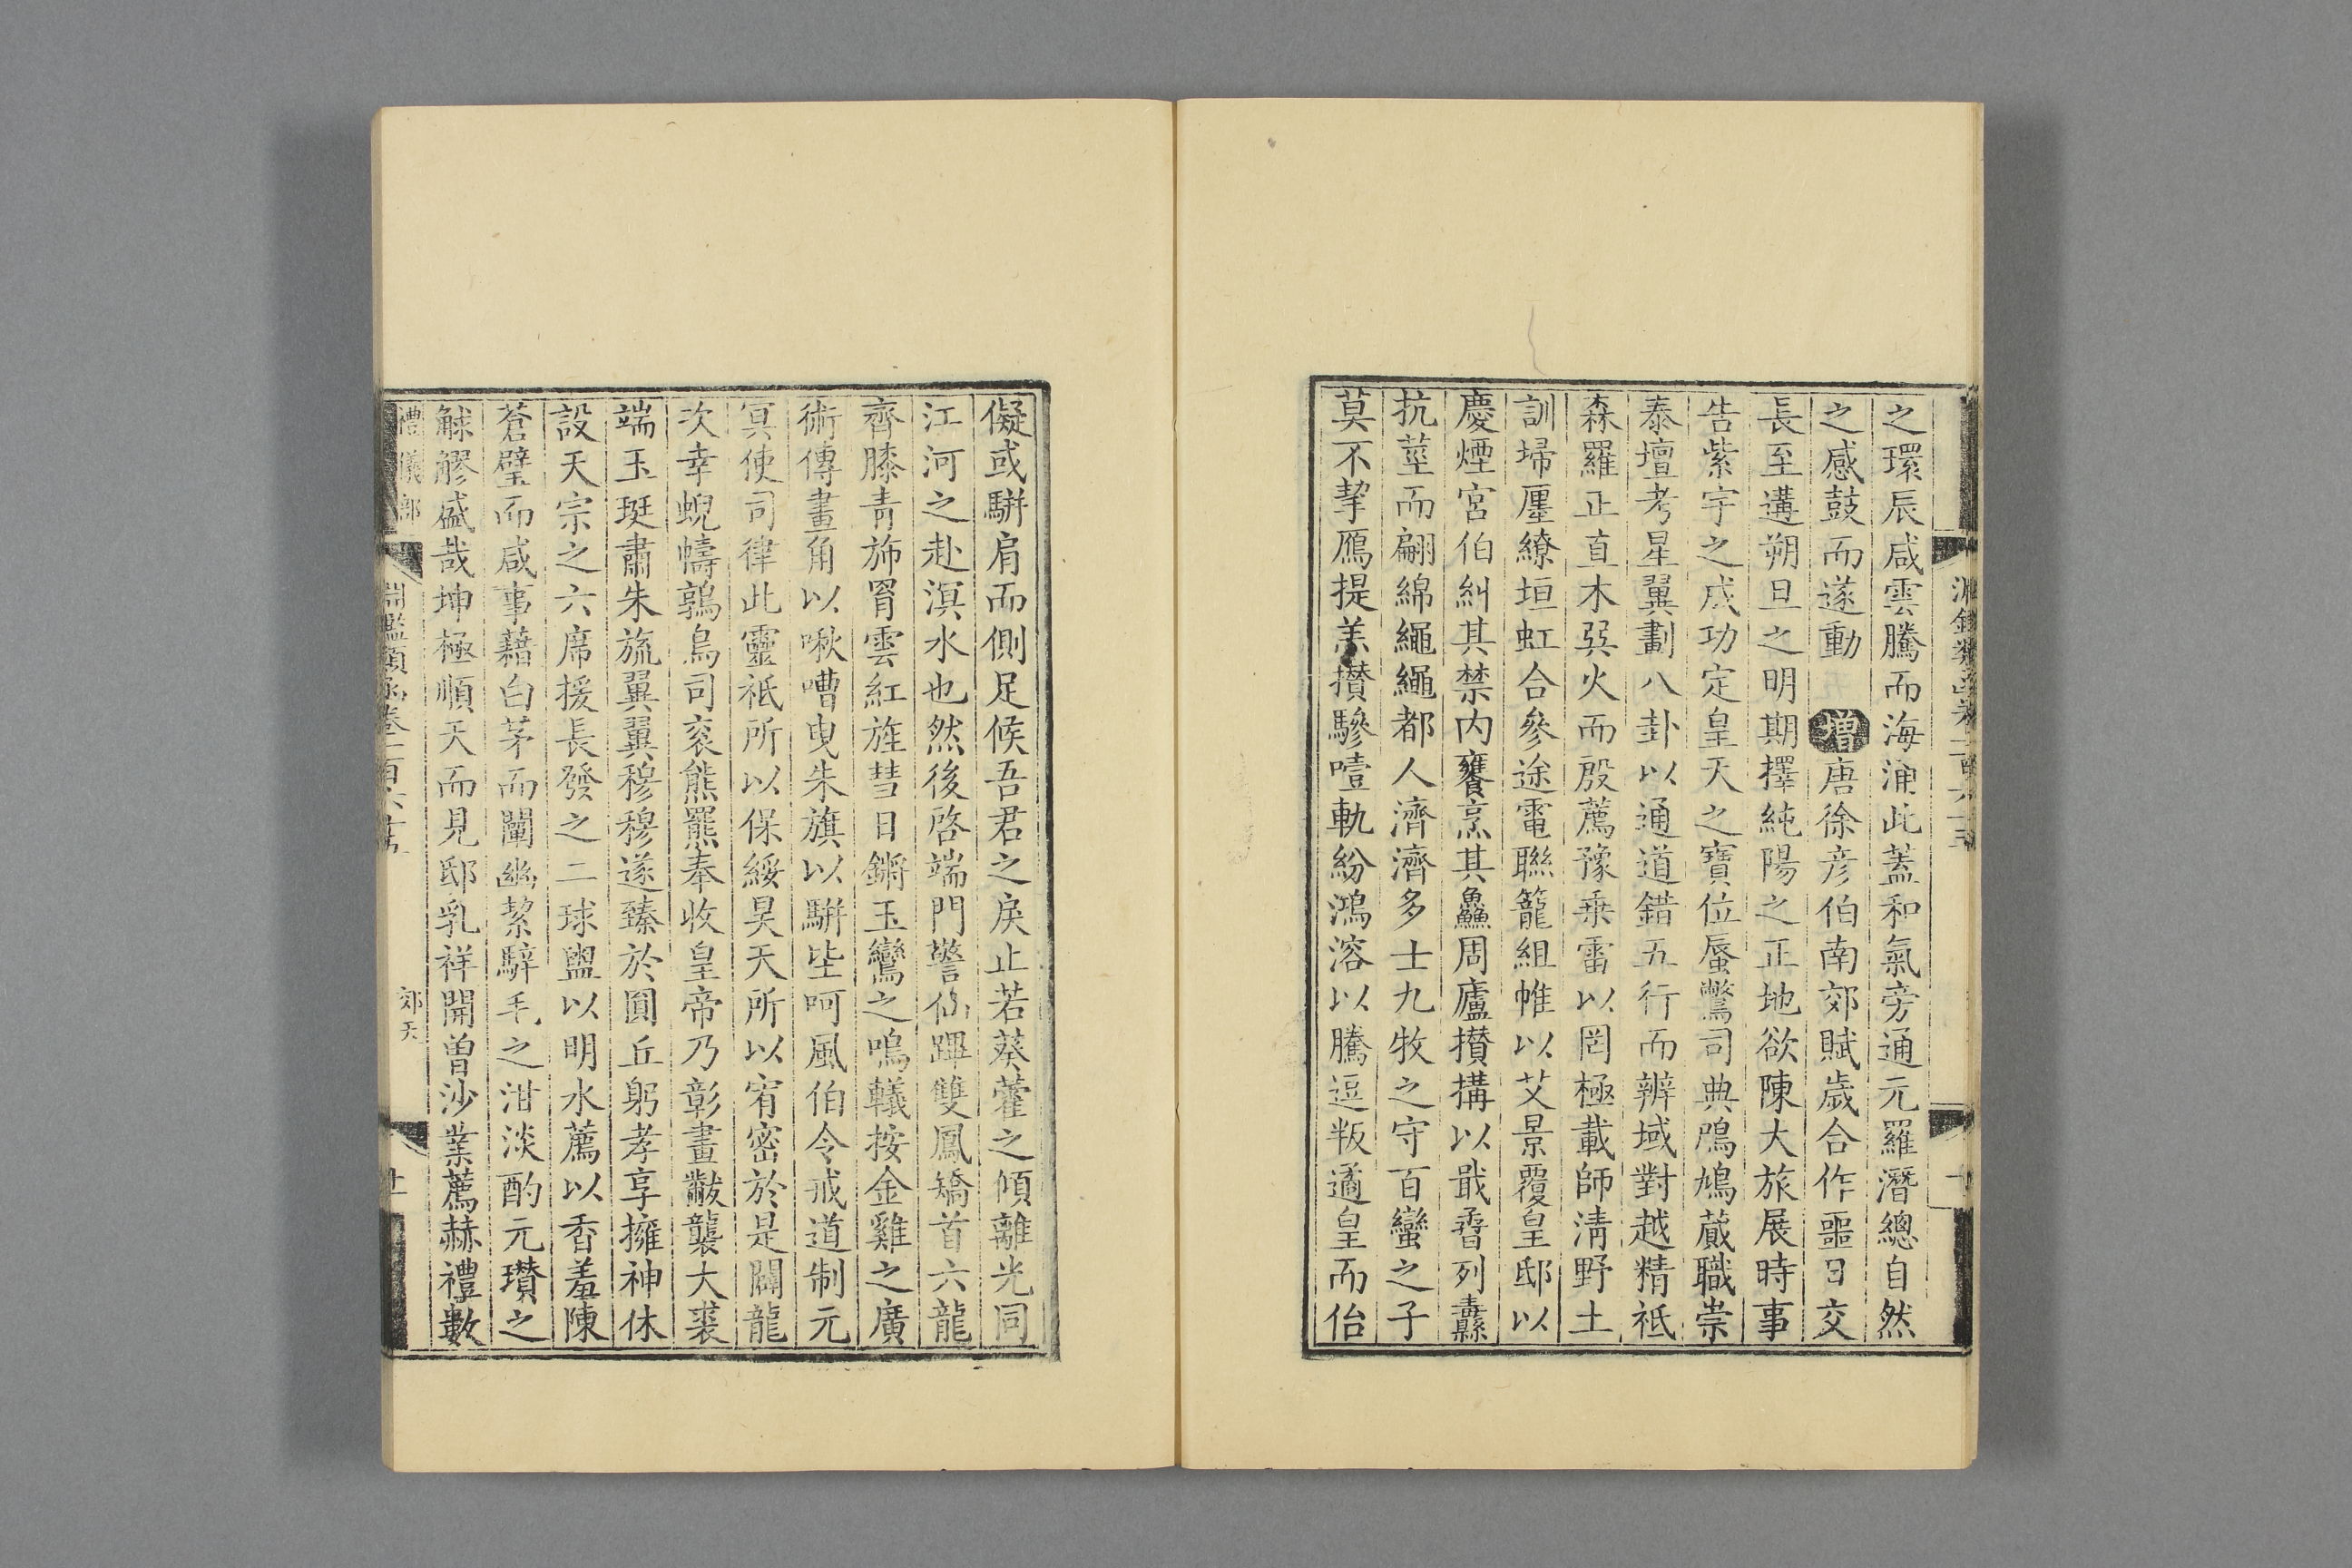 之環辰咸雲騰而海涌此蓋和氣旁通元羅潛總自然
之感鼓而遂動 增唐徐彦伯南郊賦歲合作噩日交
長至遘朔旦之明期擇純陽之正地欲陳大旅展時事
告紫宇之成功定皇天之寶位蜃鷩司典鳲鳩蕆職崇
泰壇考星翼劃八卦以通道錯五行而辨域對越精祗
森羅正直木㢲火而殷薦豫乗雷以罔極載師淸野土
訓埽㕓繚垣虹合參途電聯籠組帷以艾景覆皇邸以
慶煙宮伯糾其禁内饔烹其鱻周廬攅構以戢孴列纛
抗莖而翩綿繩繩都人濟濟多士九牧之守百蠻之子
莫不挈鴈提羔攅驂噎軌紛鴻溶以騰逗叛遹皇而佁
儗或駢肩而側足候吾君之戾止若葵藿之傾離光同
江河之赴溟水也然後啓端門警仙蹕雙鳳矯首六龍
齊膝靑斾罥雲紅旌彗日鏘玉鸞之鳴轙按金雞之廣
術傳畫角以啾嘈曳朱旗以駢坒呵風伯令戒道制元
冥使司律此靈祗所以保綏昊天所以宥密於是闢龍
次幸蜺幬鶉鳥司衮熊羆奉收皇帝乃彰畫黻襲大裘
端玉珽肅朱旒翼翼穆穆遂臻於圓丘躬孝享擁神休
設天宗之六席援長發之二球盥以明水薦以香羞陳
蒼璧而咸事藉白茅而闡幽絜騂毛之泔淡酌元瓉之
觩觺盛哉坤極順天而見邸乳祥開曽沙業薦赫禮數
禮儀部
淵鑑類函卷一百六十五
郊天
十一